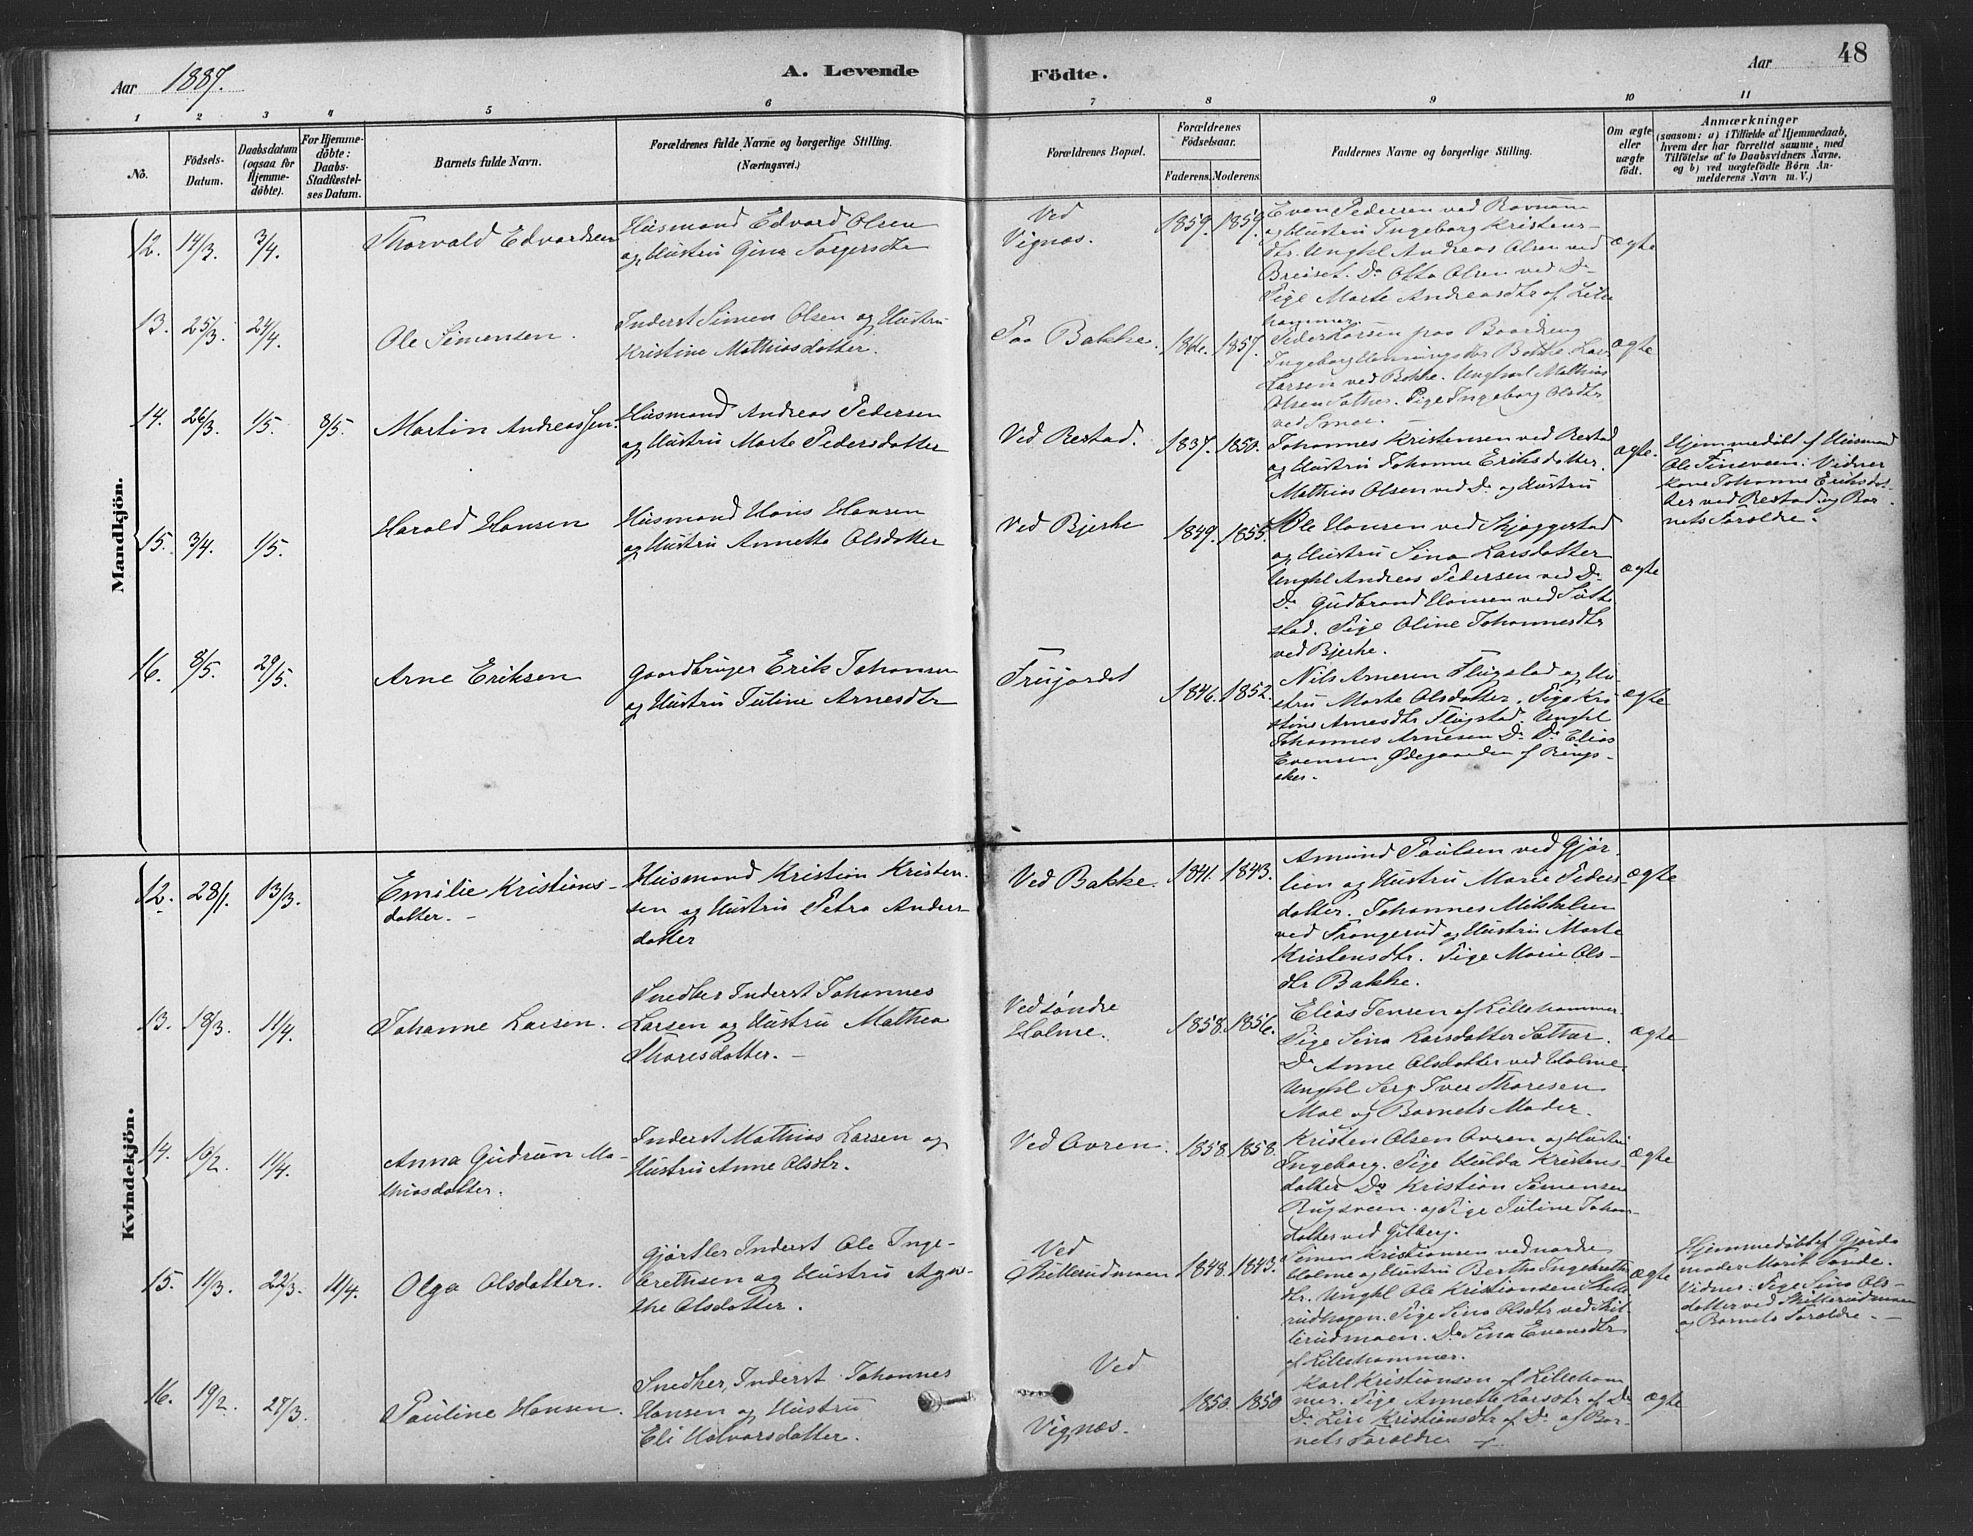 Aar 1887.
A. Levende
Födte.
Aar
48
1 2 3 4 5 6 7 8 9 10 11
No.
Födsels-
Datum.
Daabsdatum
(ogsaa for
Hjemme-
döbte).
For Hjemme-
döbte:
Daabs-
Stadfæstel-
ses Datum.
Barnets fulde Navn.
Forældrenes fulde Navne og borgerlige Stilling.
(Næringsvei.)
Forældrenes Bopæl.
Forældrenes
Födselsaar.
Faderens. Moderens.
Faddernes Navne og borgerlige Stilling.
Om ægte
eller
uægte
födt.
Anmærkninger
(saasom: a) i Tilfælde af Hjemmedaab,
hvem der har forrettet samme, med
Tilföielse af to Daabsvidners Navne,
og b) ved uægtefödte Börn An-
melderens Navn m. V.)
Mandkjön.
12. 14/3. 3/4.
Thorvald Edvardsen
Husmand Edvard Olsen
og Hustru Gina
Ved
Vignæs.
1859. 1859.
Even Pedersen ved
og Hustru Ingeborg Kristens-
dtr. Unghl Andreas Olsen ved
Do Otto Olsen ved Do
Pige Marte Andreasdtr af Lille
hammer.
ægte
13. 25/3. 24/4.
Ole Simensen.
Inderst Simen Olsen og Hustru
Kristine Mathiasdatter.
Paa Bakke.
1857.
Peder Larsen paa
Ingeborg
Larsen ved Bakke. Ungkarl Mathias
Olsen Pige Ingeborg Olsdtr
ved
ægte
14. 26/3. 1/5. 8/5.
Martin Andreassen.
Husmand Andreas Pedersen
og Hustru Marte Pedersdatter
Ved Restad.
1837. 1850.
Johannes Kristensen ved Restad
og Hustru Johanne Eriksdatter.
Mathias Olsen ved Do og Hustru
ægte.
Hjemmedøbt af Husmand
Ole Vidner
Kone Johanne Eriksdat-
ter ved Restad og Bar-
nets Forældre.
15. 3/4. 1/5.
Harald Hansen
Husmand Hans Hansen
og Hustru Annette Olsdatter
Ved Bjerke
1849. 1855.
Ole Hansen ved Skjæggestad
og Hustru Sina Larsdatter
Unghl Andreas Pedersen ved Do
Do Gudbrand Hansen ved
stad. Pige Oline Johannesdtr
ved Bjerke.
ægte
16. 8/5. 29/5.
Arne Eriksen
Gaardbruger Erik Johansen
og Hustru Juline Arnesdtr
1846. 1852.
Nils Arnesen Flugstad og Hu-
stru Marte Olsdatter. Pige Kri-
stine Arnesdtr Flugstad. Unghl
Johannes Arnesen Do Do Elias
Evensen Ødegaarden af Rings-
aker.
ægte
Kvindekjön.
12. 28/1. 13/3.
Emilie Kristians-
datter. –
Husmand Kristian Kristen-
sen og Hustru Petra Anders-
datter
Ved Bakke.
1841. 1843.
Amund Paulsen ved Gjør-
lien og Hustru Marie Peders-
datter. Johannes Mikkelsen
ved og Hustru Marte
Kristensdtr. Pige Marie Ols-
dtr Bakke.
ægte
13. 18/3. 11/4.
Johanne Larsen.
Snedker Inderst Johannes
Larsen og Hustru Mathea
Thoresdatter. –
Ved søndre
Holme.
1858. 1856.
Elias Jensen af Lillehammer.
Pige Sina Larsdatter
Do Anne Olsdatter ved Holme
Unghl Iver Thoresen
Moe og Barnets Moder.
ægte
14. 16/2. 11/4.
Anna Gudrun Ma-
thiasdatter.
Inderst Mathias Larsen og
Hustru Anne Olsdtr.
Ved Ovren.
1858. 1858.
Kristen Olsen Ovren og Hustru
Ingeborg. Pige Hulda Kristens-
datter Do Kristian Simensen
Rugsveen. og Pige Juline Johan-
datter ved Gilberg.
ægte
15. 11/3. 22/3. 11/4.
Olga Olsdatter.
Gjørtler Inderst Ole Inge-
brethsen og Hustru Agne-
the Olsdatter.
Ved
Skillerudmoen
1848. 1843.
Simen Kristiansen ved nordre
Holme og Hustru Berthe Ingebreths
dtr. Unghl Ole Kristiansen
rudhagen. Pige Sina Olsdtr ved Skil-
lerudmoen. Do Sina Evensdtr
af Lillehammer.
ægte
Hjemmedøbt af Gjorde-
moder Marit Sande.
Vidner: Pige Sina Ols-
datter ved Skillerudmoen
og Barnets Forældre. –
16. 19/2. 27/3.
Pauline Hansen.
Snedker, Inderst Johannes
Hansen og Hustru
Eli Halvorsdatter.
Ved
Vignæs.
1850. 1850
Karl Kristiansen af Lilleham-
mer. Pige Annette Larsdtr af Do
Do Kristiansdtr af Do af Bar-
nets Forældre
ægte